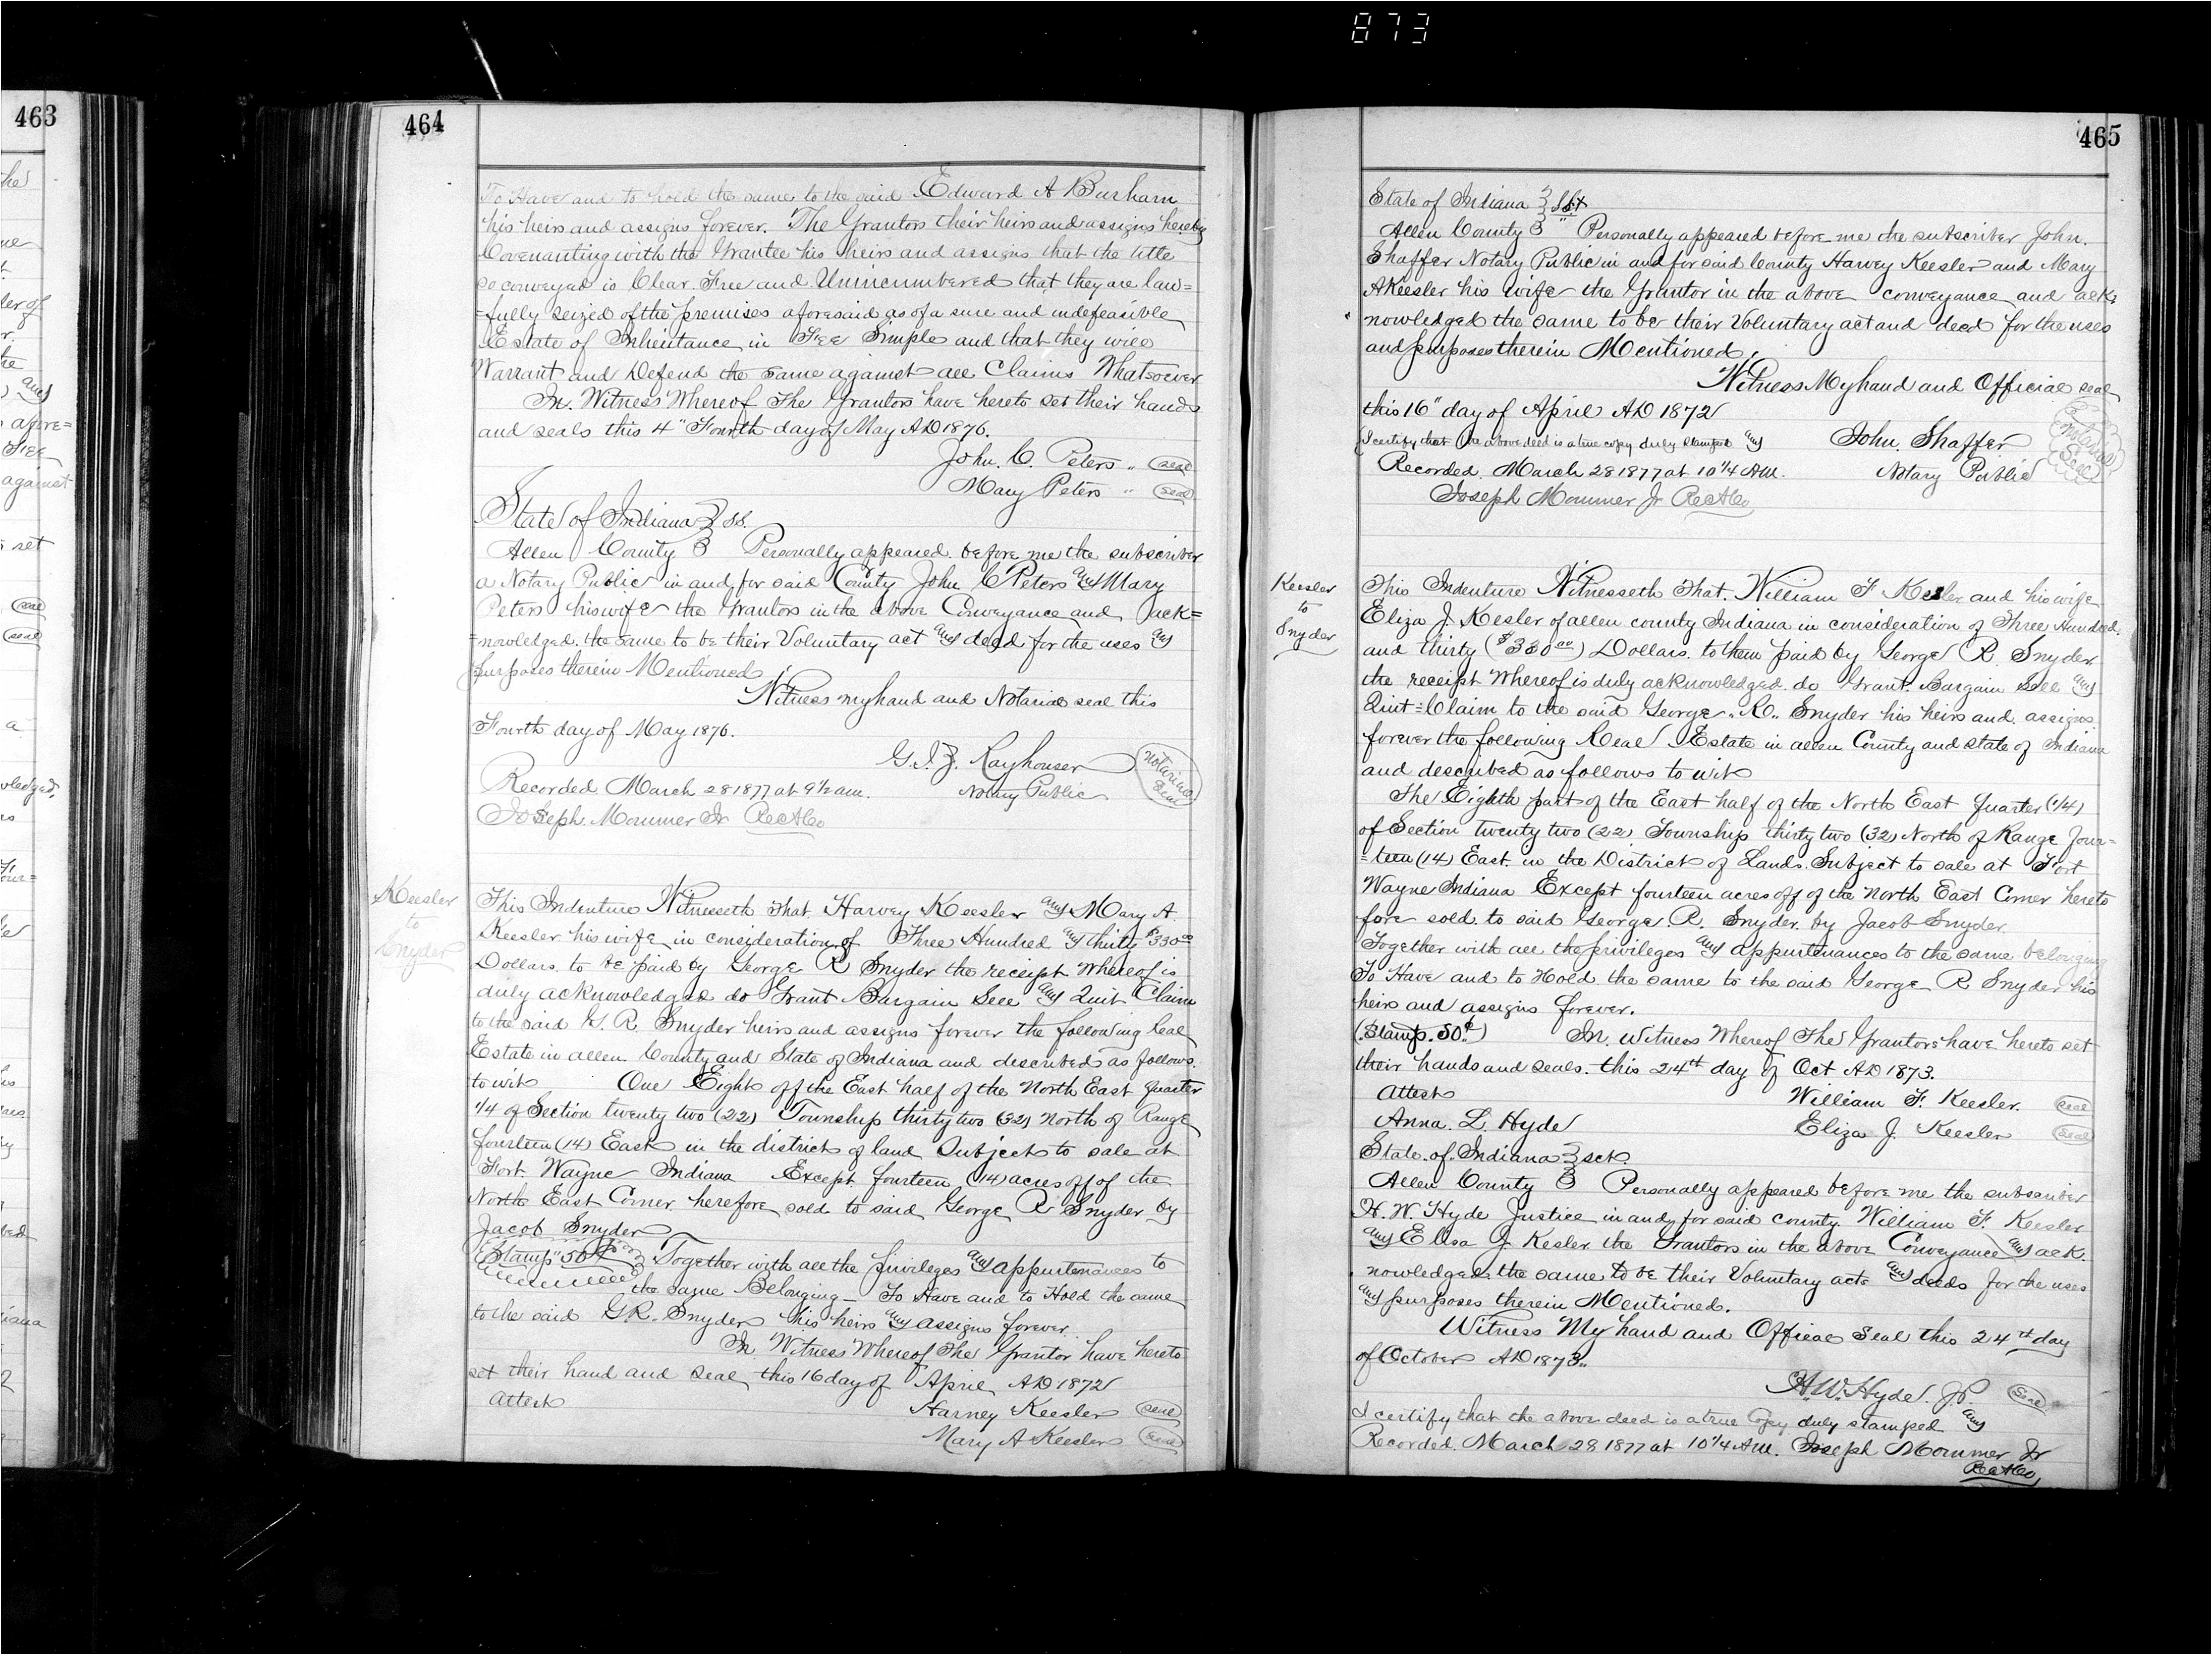 873
463
464
To Have and to hold the same to the said Edward A Burham
his heirs and assigns forever. The Grantors their heirs and assigns hereby
Covenanting with the Grantee his heirs and assigns that the title
so conveyed is Clear. Free and Unincumbered that they are law=
=fully seized of the premises aforesaid as of a sure and indefeasible
Estate of Inheritance in Fee Simple and that they will
Warrant and Defend the same against all Claims Whatsoever
In. Witness Whereof The Grantors have hereto set their hands
and seals this 4" Fourth day of May AD 1876.
John. C. Peters " seal
Mary Peters " seal
State of Indiana } ss.
Allen County } Personally appeared before me the subscriber
a Notary Public in and for said County John C Peters and Mary
Peters his wife the Grantors in the above Conveyance and ack=
=nowledged the same to be their Voluntary act and deed for the uses and
purposes therein Mentioned
Witness my hand and Notarial seal this
Fourth day of May 1876.
G. I. Z. Rayhouser Notarial Seal
Recorded March 28 1877 at 9 1/2 am. Notary Public
Joseph Mommer Jr RecACo
Keesler
to
Snyder
This Indenture Witnesseth That. Harvey Keesler and Mary A.
Keesler his wife in consideration of Three Hundred and thirty $330 00
Dollars. to be paid by George R Snyder the receipt whereof is
duly acknowledged do Grant Bargain Sell and Quit Claim
to the said G. R. Snyder heirs and assigns forever the following Real
Estate in allen County and State of Indiana and described as follows.
to wit One Eight off the East half of the North East quarter
1/4 of Section twenty two (22) Township thirty two (32) North of Range
fourteen (14) East in the district of land Subject to sale at
Fort Wayne Indiana Except fourteen (14) acres off of the
North East Corner herefore sold to said George R Snyder by
Jacob Snyder
Stamp 50¢ Together with all the privileges and appurtenances to
the same Belonging – To Have and to Hold the same
to the said G R. Snyder his heirs and assigns forever.
In Witness Whereof The Grantor have hereto
set their hand and seal this 16 day of April AD 1872
Attest Harvey Keesler seal
Mary A Keesler seal
465
State of Indiana } Sct
Allen County } Personally appeared before me the subscriber John.
Shaffer Notary Public in and for said County Harvey Keesler and Mary
A Keesler his wife the Grantor in the above conveyance and ack=
nowledged the same to be their Voluntary act and deed for the uses
and purposes therein Mentioned.
Witness My hand and Official seal
this 16" day of April AD 1872
I certify that the above deed is a true copy duly stamped and John. Shaffer Notarial Seal
Recorded March 28 1877 at 10 1/4 AM. Notary Public
Joseph Mommer Jr RecACo
Keesler
to
Snyder
This Indenture Witnesseth That. William F Kesler and his wife
Eliza J. Kesler of allen county Indiana in consideration of Three Hundred.
and thirty ($330 00) Dollars. to them paid by George R. Snyder
the receipt Whereof is duly acknowledged do Grant. Bargain Sell and
Quit=Claim to the said George. R. Snyder his heirs and assigns
forever the following Real Estate in allen County and State of Indiana
and described as follows to wit
The Eighth part of the East half of the North East Quarter (1/4)
of Section twenty two (22) Township thirty two (32) North of Range four=
=teen (14) East. in the District of Lands. Subject to sale at Fort
Wayne Indiana Except fourteen acres off of the North East Corner hereto
fore sold. to said George. R. Snyder. by Jacob Snyder.
Together with all the privileges and appurtenances to the same belonging
To Have and to Hold the same to the said George R Snyder his
heirs and assigns forever.
(Stamp. 50¢) In. Witness Whereof The Grantors have hereto set
their hands and seals. this 24th day of Oct AD 1873.
Attest William F. Keesler. seal
Anna. L. Hyde Eliza J. Keesler seal
State. of. Indiana } sct.
Allen County } Personally appeared before me the subscriber
H. W. Hyde Justice in and for said county. William F. Keesler
and Elisa J. Kesler the Grantors in the above Conveyance and ack.
nowledged the same to be their Voluntary acts and deeds for the uses
and purposes therein Mentioned.
Witness My hand and Official Seal this 24th day
of October AD 1873.
H. W. Hyde J.P. Seal
I certify that the above deed is a true Copy duly stamped and
Recorded. March 28 1877 at 10 1/4 AM. Joseph Mommer Jr
RecACo